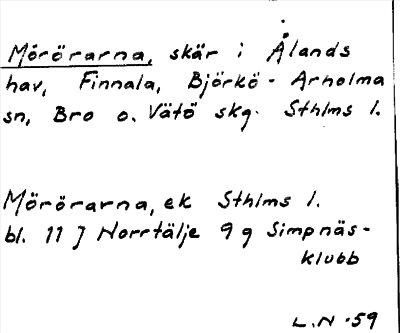 Mörörarna, skär i Ålands
hav, Finnala, Björkö - Arholma
sn, Bro o. Vätö skg. Sthlms l.
Mörörarna, ek Sthlms l.
bl. 11 J Norrtälje 9 g Simpnäs-
klubb
L.N -59